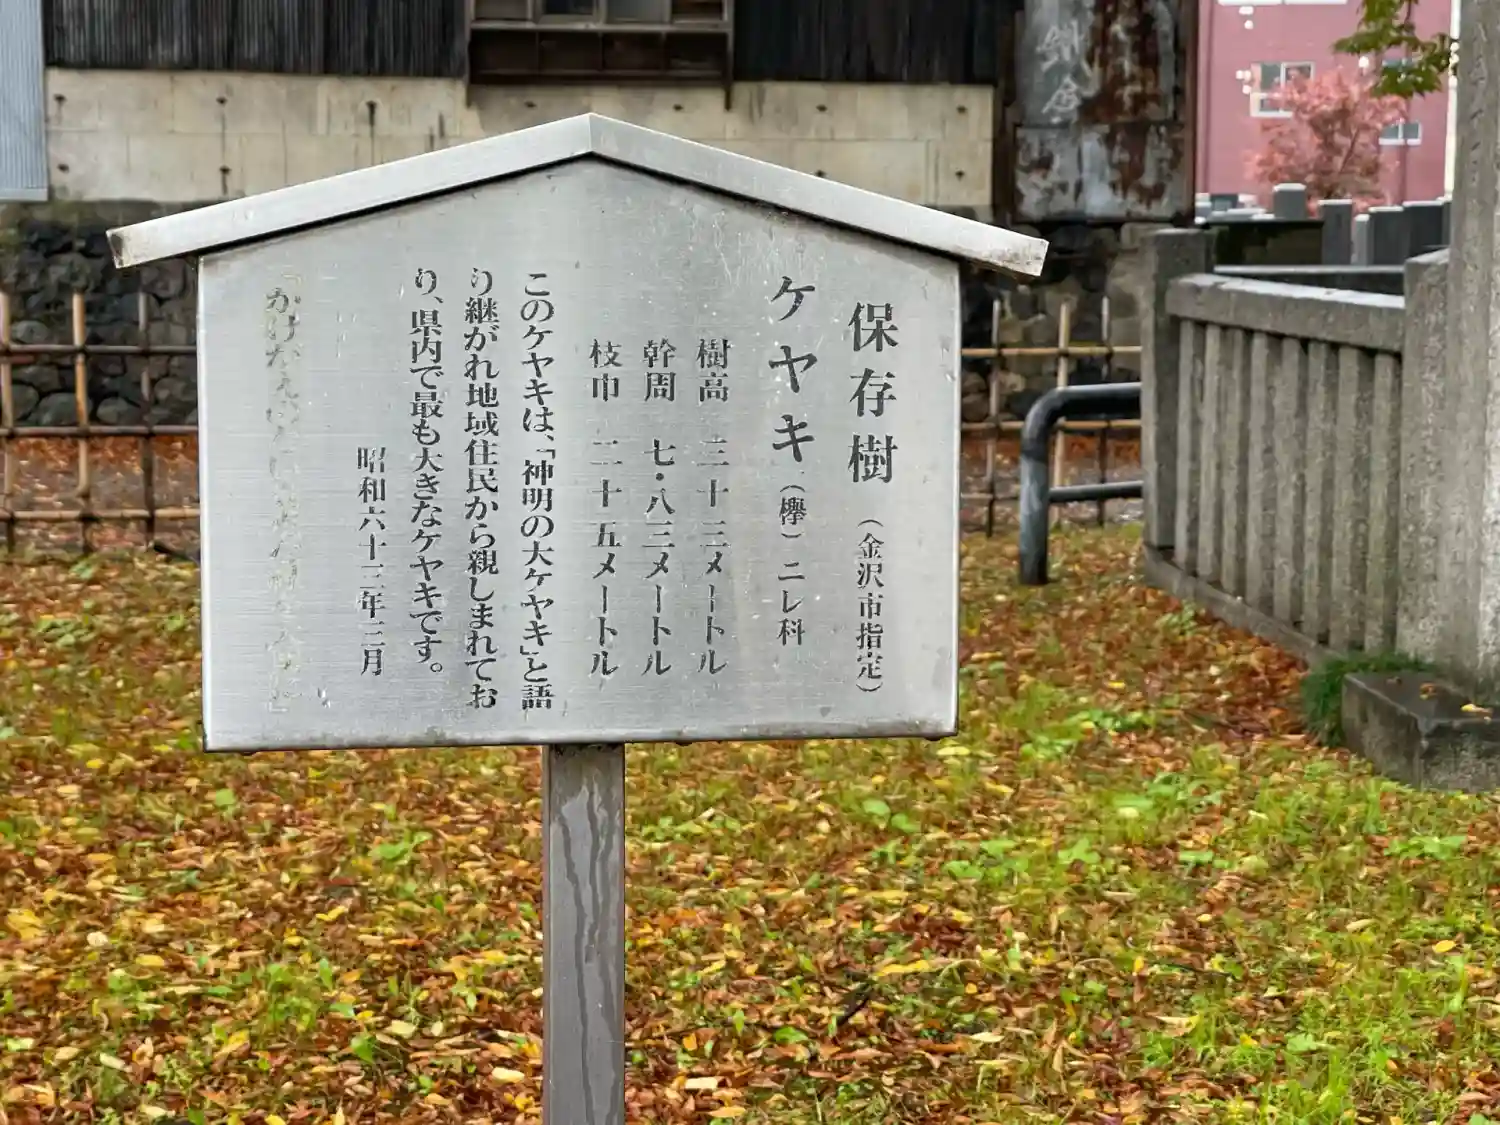 保存樹（金沢市指定）
ケヤキ（欅）ニレ科
樹高 三十三メートル
幹周 七・八三メートル
枝巾 二十五メートル
このケヤキは、「神明の大ケヤキ」と語
り継がれ地域住民から親しまれてお
り、県内で最も大きなケヤキです。
昭和六十三年三月